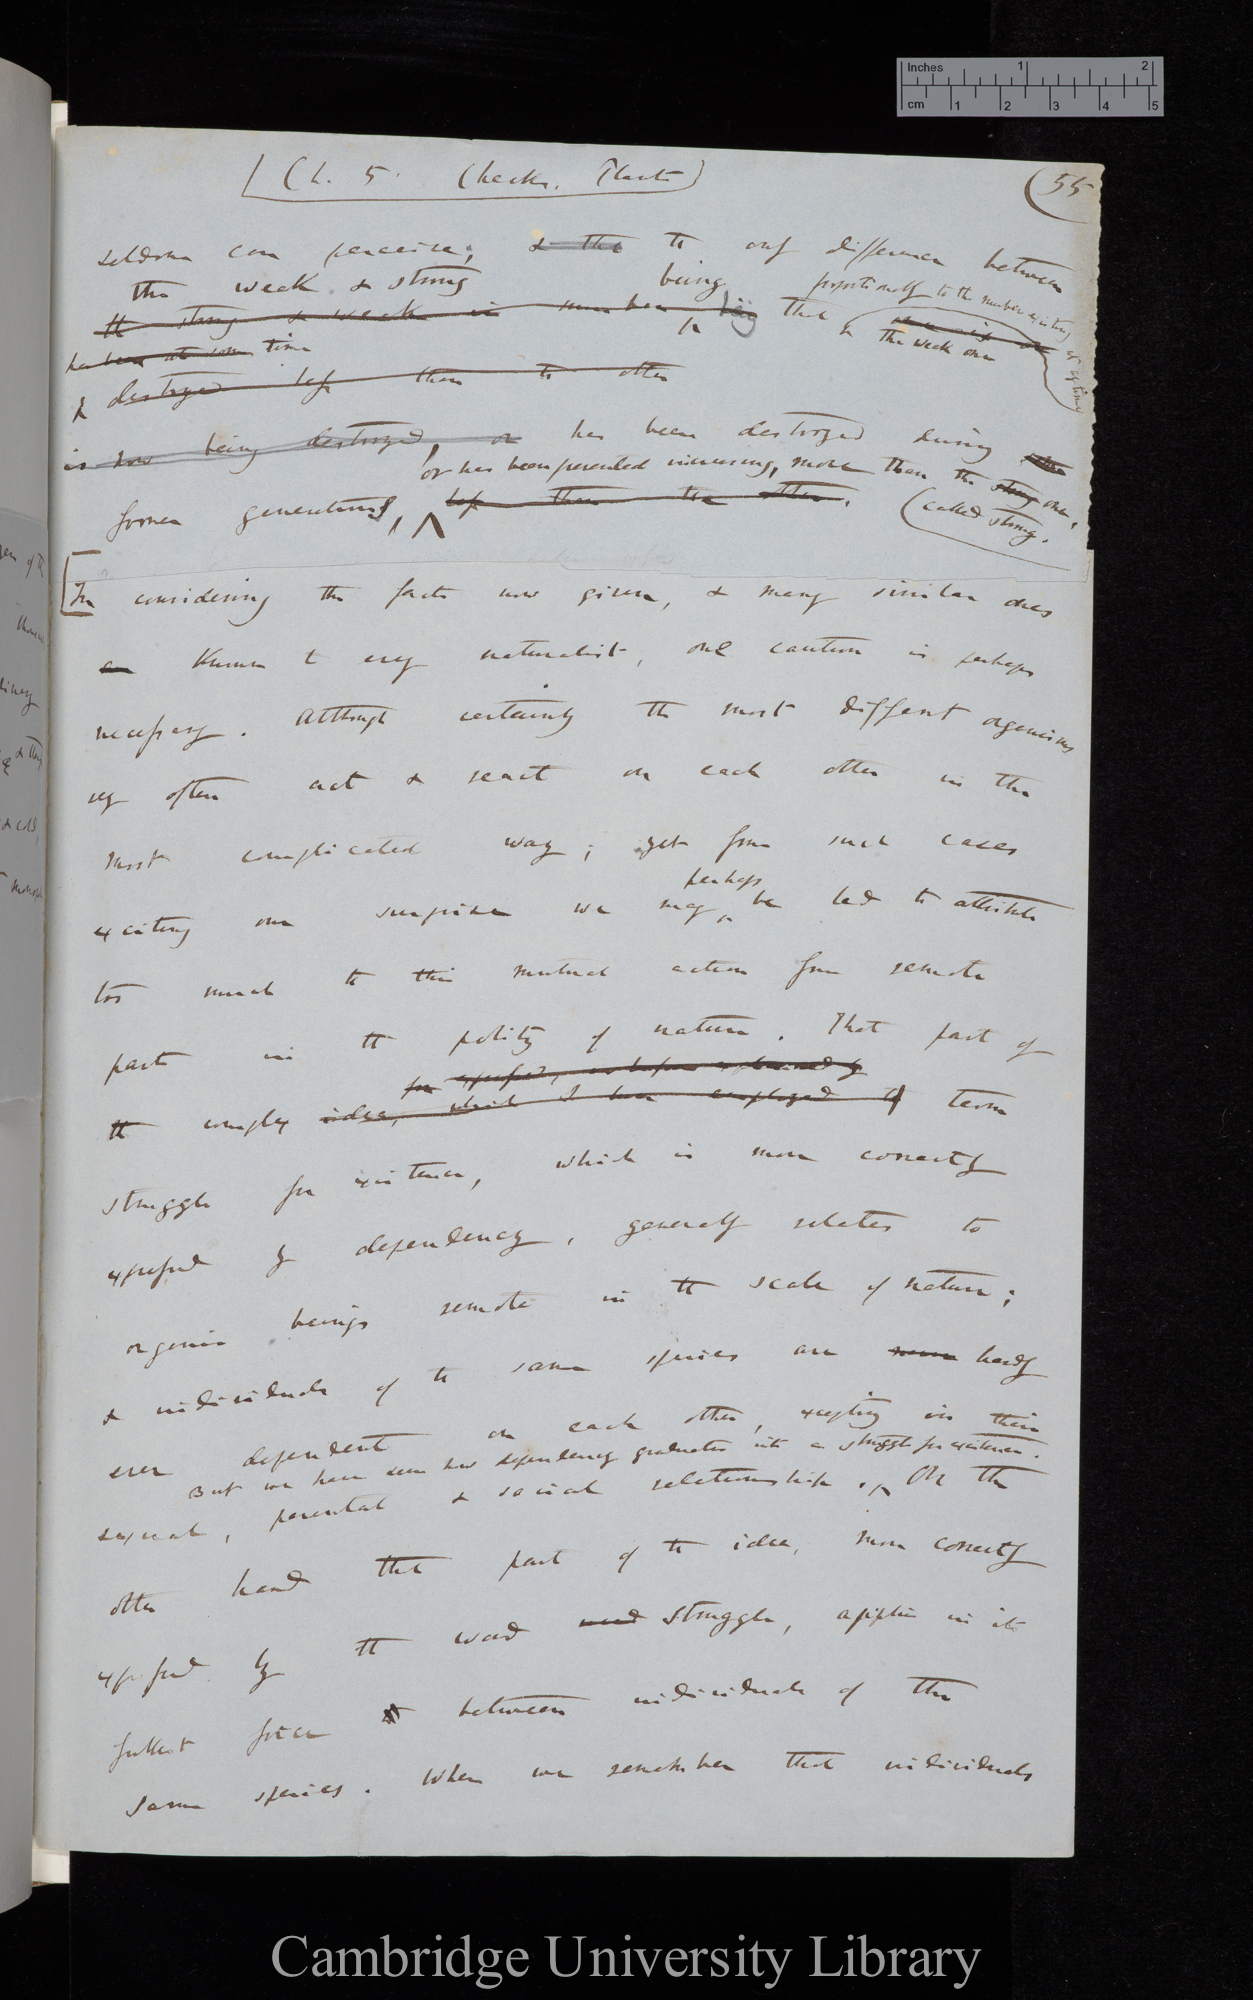 Inches 1 2
cm 1 2 3 4 5
Ch. 5. Checks. Plants
55
seldom can perceive; & the the only difference between
the weak & strong being proportionally to the number existing
the strong & weak in number being that
the weak one
has been at some time
& destroyed less than the other
is now being destroyed, or has been destroyed during the
or has been prevented increasing, more than the strong one,
former generations, less than the other. called strong.
In considering the facts now given, & many similar ones
known to every naturalist, one caution is perhaps
necessary. Although certainly the most different organisms
very often act & react on each other in the
most complicated way; yet from such cases
perhaps
exciting our surprise we may be led to attribute
too much to this mutual action from remote
parts in the polity of nature. That part of
expressed, as before explained by
the complex idea, which I have employed the term
struggle for existence, which is more correctly
expressed by dependency, generally relates to
organic beings remote in the scale of nature;
& individuals of the same species are never hardly
ever dependent on each other, excepting in their
But we have seen how dependency graduates into a struggle for existence.
sexual, parental & social relationships. On the
other hand that part of the idea, more correctly
expressed by the word struggle, applies in its
fullest force between individuals of the
same species. When we remember that individuals
Cambridge University Library